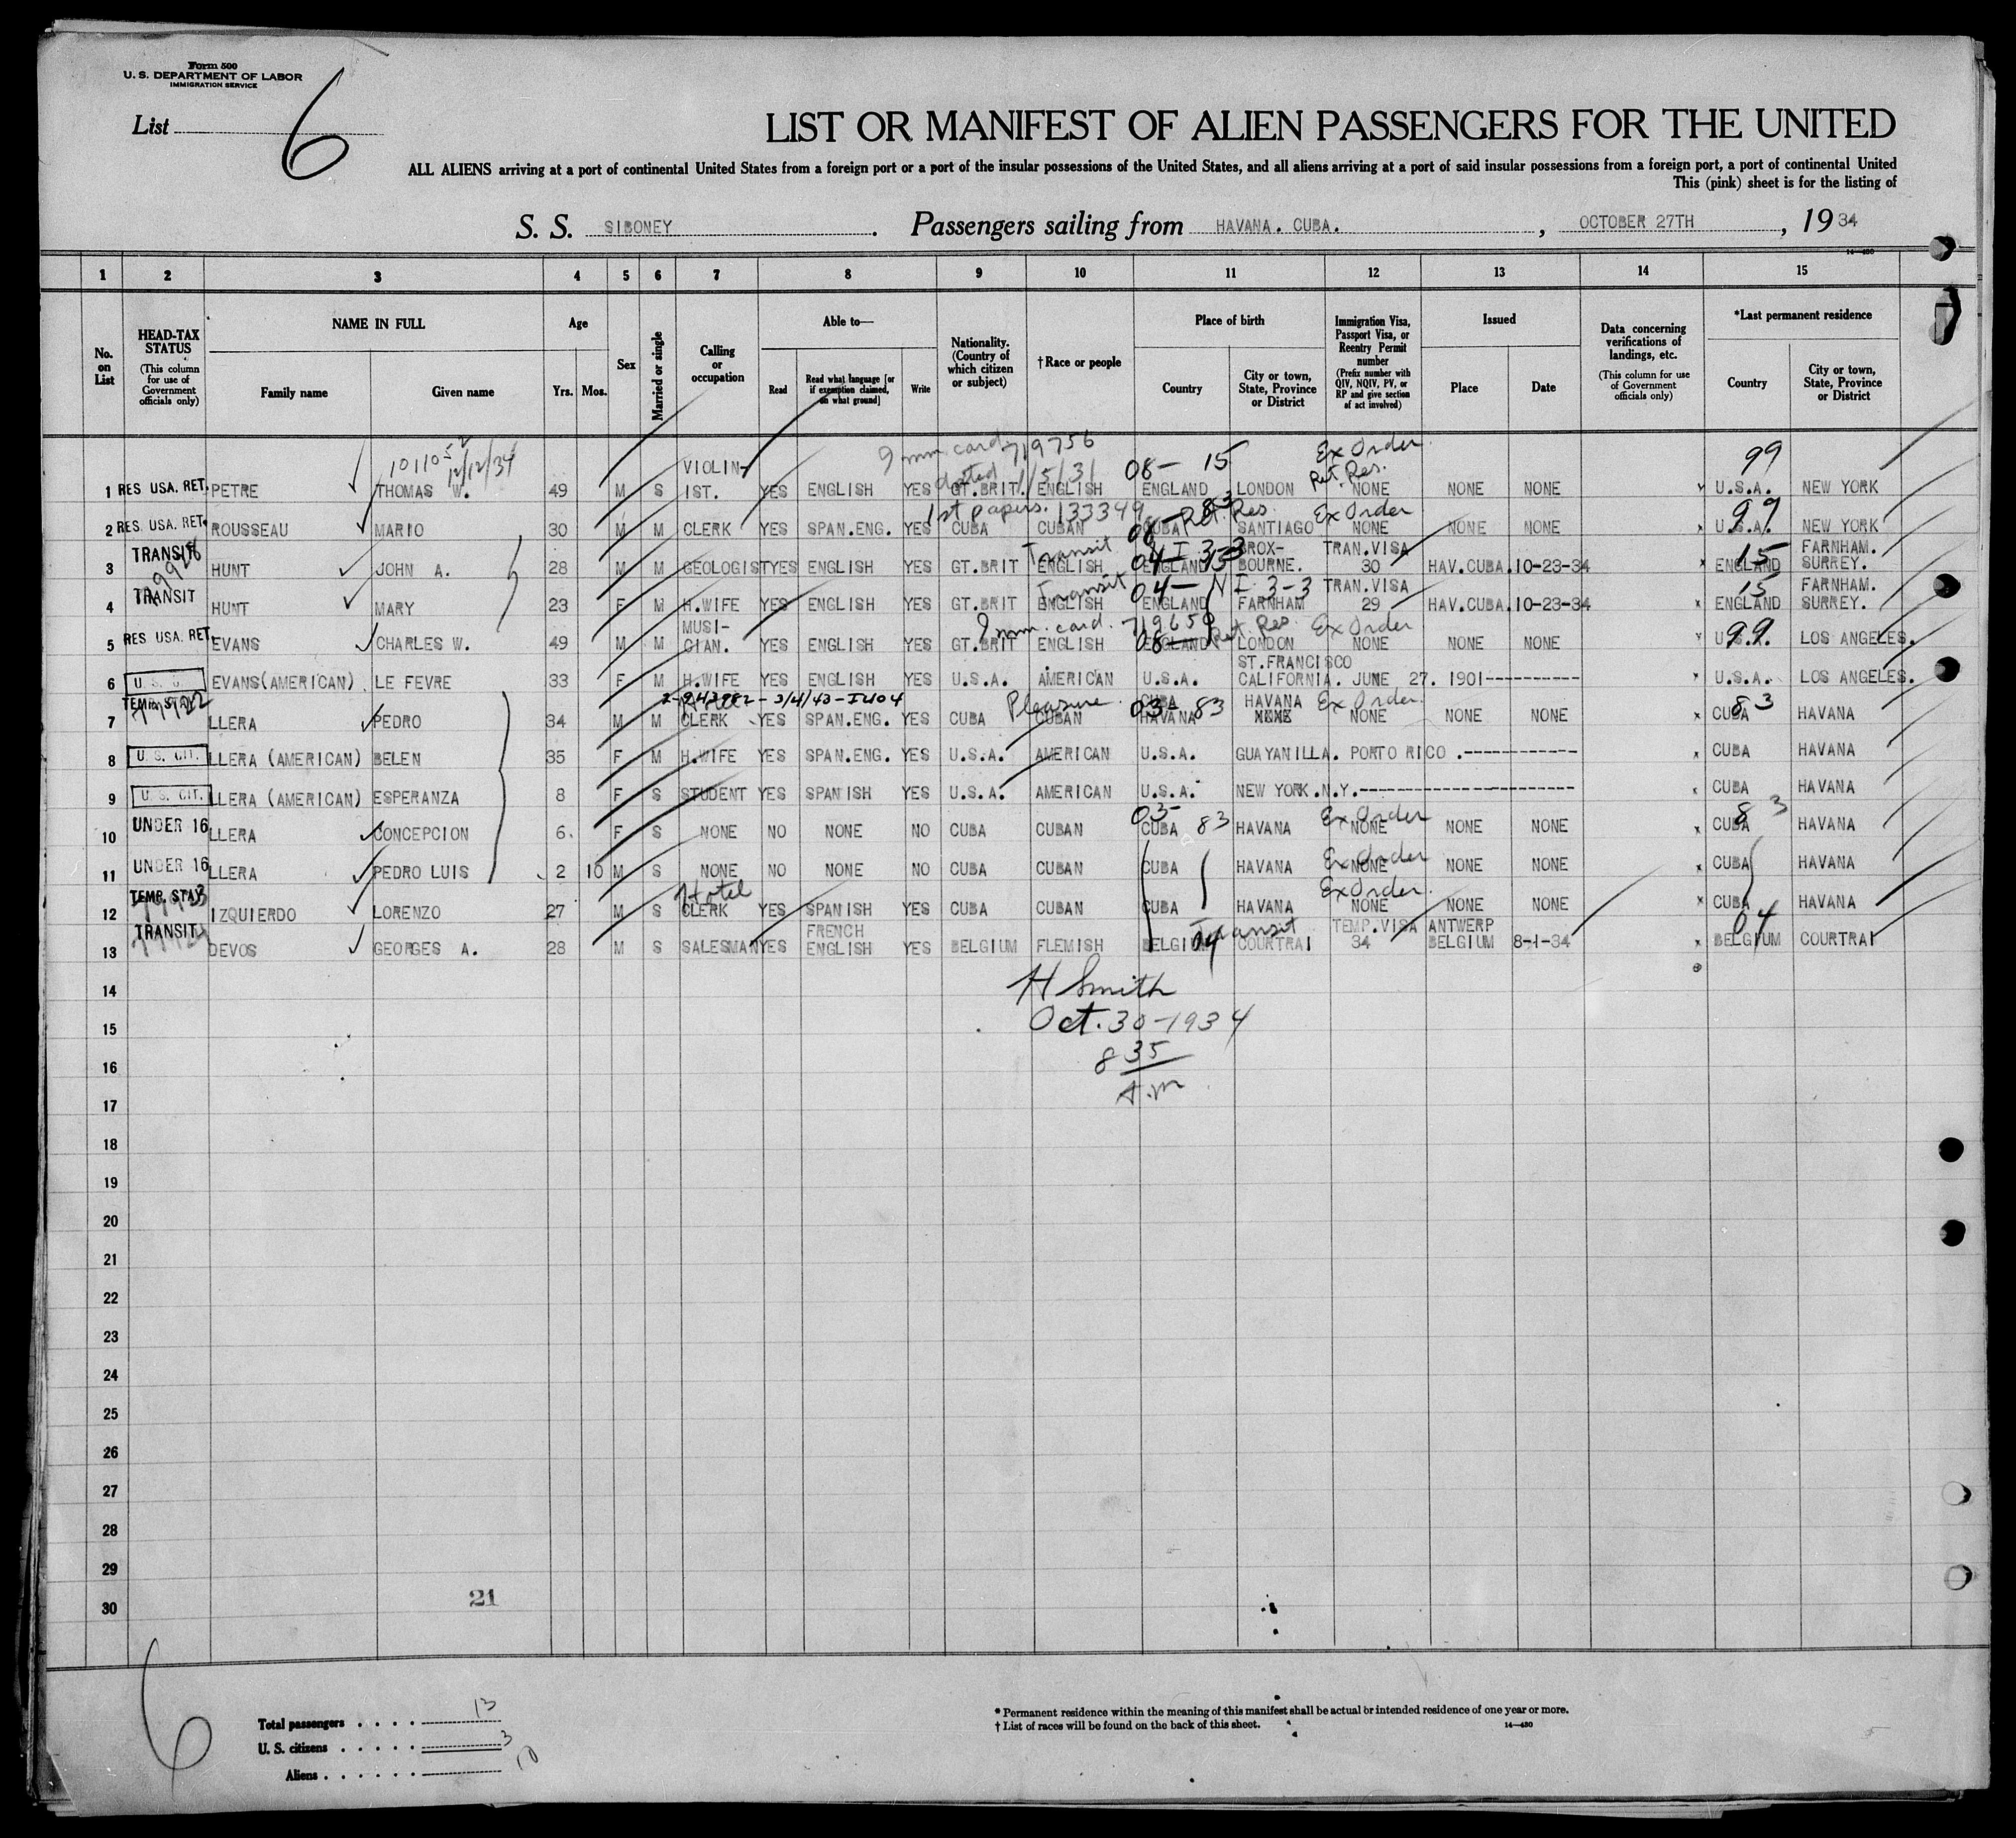 Form 500
U. S. DEPARTMENT OF LABOR
IMMIGRATION SERVICE
List 6
LIST OR MANIFEST OF ALIEN PASSENGERS FOR THE UNITED
ALL ALIENS arriving at a port of continental United States from a foreign port or a port of the insular possessions of the United States, and all aliens arriving at a port of said insular possessions from a foreign port, a port of continental United
This (pink) sheet is for the listing of
S. S. SIBONEY. Passengers sailing from HAVANA. CUBA., OCTOBER 27TH, 1934
14-480
1 2 3 4 5 6 7 8 9 10 11 12 13 14 15
No. on List
HEAD-TAX STATUS (This column for use of Government officials only)
NAME IN FULL
Family name Given name
Age
Yrs. Mos.
Sex
Married or single
Calling or occupation
Able to—
Read Read what language [or if exemption claimed, on what ground] Write
Nationality. (Country of which citizen or subject)
†Race or people
Place of birth
Country City or town, State, Province or District
Immigration Visa, Passport Visa, or Reentry Permit number (Prefix number with QIV, NQIV, PV, or RP and give section of act involved)
Issued
Place Date
Data concerning verifications of landings, etc. (This column for use of Government officials only)
*Last permanent residence
Country City or town, State, Province or District
12/12/34 Imm. card 719756 08- 15 Ex Order 99
VIOLIN- dated 1/5/31 Ret. Res.
1 RES USA. RET. PETRE THOMAS W. 49 M S IST. YES ENGLISH YES GT.BRIT. ENGLISH ENGLAND LONDON NONE NONE NONE U.S.A. NEW YORK
1st papers. 133349 Ret. Res. Ex Order 99
2 RES. USA. RET. ROUSSEAU MARIO 30 M M CLERK YES SPAN.ENG. YES CUBA CUBAN CUBA SANTIAGO NONE NONE NONE U.S.A. NEW YORK
TRANSIT Transit BROX- TRAN.VISA 15 FARNHAM.
3 HUNT JOHN A. 28 M M GEOLOGIST YES ENGLISH YES GT.BRIT ENGLISH ENGLAND BOURNE. 30 HAV.CUBA. 10-23-34 ENGLAND SURREY.
TRANSIT Transit 04- N I 3-3 TRAN.VISA 15 FARNHAM.
4 HUNT MARY 23 F M H.WIFE YES ENGLISH YES GT.BRIT ENGLISH ENGLAND FARNHAM 29 HAV.CUBA. 10-23-34 ENGLAND SURREY.
MUSI- Imm. card. 719659 08- Ret. Res. Ex Order 99
5 RES USA. RET. EVANS CHARLES W. 49 M M CIAN. YES ENGLISH YES GT.BRIT ENGLISH ENGLAND LONDON NONE NONE NONE U.S.A. LOS ANGELES.
ST.FRANCISCO
6 EVANS(AMERICAN) LE FEVRE 33 F M H.WIFE YES ENGLISH YES U.S.A. AMERICAN U.S.A. CALIFORNIA. JUNE 27. 1901---------- U.S.A. LOS ANGELES.
TEMP. STAY 2-943982-3/4/43-I404 Pleasure CUBA 03- 83 HAVANA Ex Order 83
7 LLERA PEDRO 34 M M CLERK YES SPAN.ENG. YES CUBA CUBAN HAVANA NONE NONE NONE NONE CUBA HAVANA
8 U. S. CIT. LLERA (AMERICAN) BELEN 35 F M H.WIFE YES SPAN.ENG. YES U.S.A. AMERICAN U.S.A. GUAYANILLA. PORTO RICO.------------ CUBA HAVANA
9 U. S. CIT. LLERA (AMERICAN) ESPERANZA 8 F S STUDENT YES SPANISH YES U.S.A. AMERICAN U.S.A. NEW YORK.N.Y.---------------------- CUBA HAVANA
03- 83 Ex Order 83
10 UNDER 16 LLERA CONCEPCION 6 F S NONE NO NONE NO CUBA CUBAN CUBA HAVANA NONE NONE NONE CUBA HAVANA
Ex Order
11 UNDER 16 LLERA PEDRO LUIS 2 10 M S NONE NO NONE NO CUBA CUBAN CUBA HAVANA NONE NONE NONE CUBA HAVANA
TEMP. STAY Hotel Ex Order
12 IZQUIERDO LORENZO 27 M S CLERK YES SPANISH YES CUBA CUBAN CUBA HAVANA NONE NONE NONE CUBA HAVANA
TRANSIT FRENCH Transit TEMP.VISA ANTWERP 04
13 DEVOS GEORGES A. 28 M S SALESMAN YES ENGLISH YES BELGIUM FLEMISH BELGIUM 04 COURTRAI 34 BELGIUM 8-1-34 BELGIUM COURTRAI
14 H Smith
15 Oct. 30-1934
16 8 35
17 A.M
18
19
20
21
22
23
24
25
26
27
28
29
30
21
6
Total passengers . . . . 13
U. S. citizens . . . . . 3
Aliens . . . . . . 10
* Permanent residence within the meaning of this manifest shall be actual or intended residence of one year or more.
† List of races will be found on the back of this sheet.
14-480